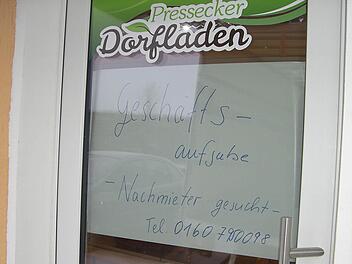 Pressecker
Dorfladen
Geschäfts -
aufgabe
- Nachmieter gesucht -
Tel. 0160 790098